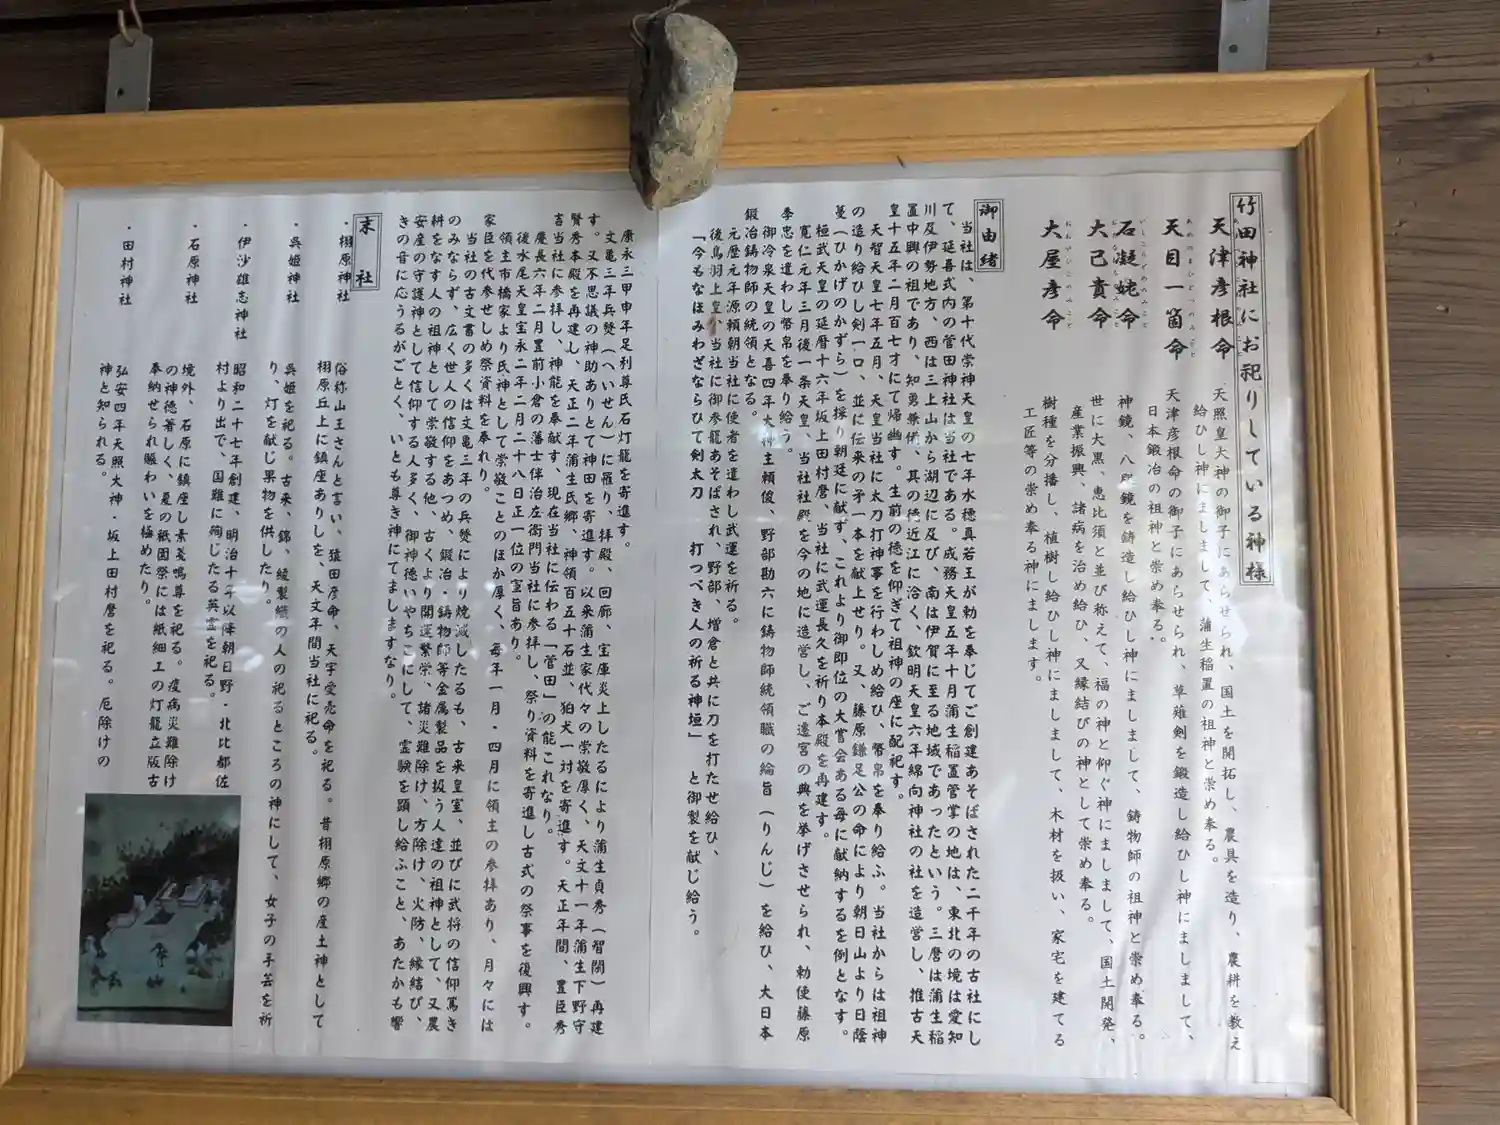 竹田神社にお祀りしている神様
天津彦根命
天照皇大神の御子にあらせられ、国土を開拓し、農具を造り、農耕を教え
給ひし神にましまして、蒲生稲置の祖神と崇め奉る。
天目一箇命
天津彦根命の御子にあらせられ、草薙剣を鍛造し給ひし神にましまして、
日本鍛冶の祖神と崇め奉る。
石凝姥命
神鏡、八咫鏡を鋳造し給ひし神にましまして、鋳物師の祖神と崇め奉る。
大己貴命
世に大黒、恵比須と並び称えて、福の神と仰ぐ神にましまして、国土開発、
産業振興、諸病を治め給ひ、又縁結びの神として崇め奉る。
大屋彦命
樹種を分播し、植樹し給ひし神にましまして、木材を扱い、家宅を建てる
工匠等の崇め奉る神にまします。
御由緒
当社は、第十代崇神天皇の七年水穂真若王が勅を奉じてご創建あそばされた二千年の古社にし
て、延喜式内の菅田神社は当社である。成務天皇五年十月蒲生稲置管掌の地は、東北の境は愛知
川及伊勢地方、西は三上山から湖辺に及び、南は伊賀に至る地域であったという。三麿は蒲生稲
置中興の祖であり、知勇兼備、其の徳近江に洽く、欽明天皇六年綿向神社の社を造営し、推古天
皇十五年二月百七才にて帰幽す。生前の徳を仰ぎて祖神の座に配祀す。
天智天皇七年五月、天皇当社に太刀打神事を行わしめ給ひ、幣帛を奉り給ふ。当社からは祖神
の造り給ひし剣一口、並に伝来の矛一本を献上せり。又、藤原鎌足公の命により朝日山より日蔭
蔓（ひかげのかずら）を採り朝廷に献ず、これより御即位の大嘗会ある毎に献納するを例となす。
桓武天皇の延暦十六年坂上田村麿、当社に武運長久を祈り本殿を再建す。
寛仁元年三月後一条天皇、当社社殿を今の地に造営し、ご遷宮の典を挙げさせられ、勅使藤原
季忠を遣わし幣帛を奉り給う。
御冷泉天皇の天喜四年大神主頼俊、野部勘六に鋳物師統領職の綸旨（りんじ）を給ひ、大日本
鍛冶鋳物師の統領となる。
元歴元年源頼朝当社に使者を遣わし武運を祈る。
後鳥羽上皇、当社に御参籠あそばされ、野部、増倉と共に刀を打たせ給ひ、
「今もなほみわざならひて剣太刀　打つべき人の祈る神垣」　と御製を献じ給う。
康永三甲申年足利尊氏石灯籠を寄進す。
文亀三年兵燹（へいせん）に罹り、拝殿、回廊、宝庫炎上したるにより蒲生貞秀（智閑）再建
す。又不思議の神助ありとて神田を寄進す。以来蒲生家代々の崇敬厚く、天文十一年蒲生下野守
賢秀本殿を再建し、天正二年蒲生氏郷、神領百五十石並、狛犬一対を寄進す。天正年間、豊臣秀
吉当社に参拝し、神能を奉献す、現在当社に伝わる「菅田」の能これなり。
慶長六年二月豊前小倉の藩士伴治左衛門当社に参拝し、祭り資料を寄進し古式の祭事を復興す。
後水尾天皇宝永二年二月二十八日正一位の宣旨あり。
領主市橋家より氏神として崇敬ことのほか厚く、毎年一月・四月に領主の参拝あり、月々には
家臣を代参せしめ祭資料を奉れり。
当社の古文書の多くは文亀三年の兵燹により焼滅したるも、古来皇室、並びに武将の信仰篤き
のみならず、広く世人の信仰をあつめ、鍛冶・鋳物師等金属製品を扱う人達の祖神として、又農
耕をなす人の祖神として崇敬する他、古くより開運繁栄、諸災難除け、方除け、火防、縁結び、
安産の守護神として信仰する人多く、御神徳いやちこにして、霊験を顕し給ふこと、あたかも響
きの音に応うるがごとく、いとも尊き神にてましますなり。
末社
・栩原神社
俗称山王さんと言い、猿田彦命、天宇受売命を祀る。昔栩原郷の産土神として
栩原丘上に鎮座ありしを、天文年間当社に祀る。
・呉姫神社
呉姫を祀る。古来、錦、綾製織の人の祀るところの神にして、女子の手芸を祈
り、灯を献じ果物を供したり。
・伊沙雄志神社
昭和二十七年創建、明治十年以降朝日野・北比都佐
村より出で、国難に殉じたる英霊を祀る。
・石原神社
境外、石原に鎮座し素戔鳴尊を祀る。疫病災難除け
の神徳著しく、夏の祇園祭には紙細工の灯籠立版古
奉納せられ賑わいを極めたり。
・田村神社
弘安四年天照大神・坂上田村麿を祀る。厄除けの
神と知られる。